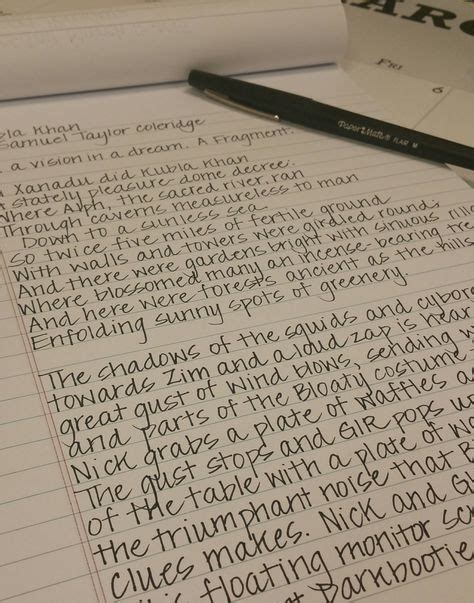 ARC
FRI
6
Paper Mate FLAIR M
bla Khan
Samuel Taylor Coleridge
a vision in a dream. A Fragment.
Xanadu did Kubla Khan
stately pleasure-dome decree:
Where Alph, the sacred river, ran
Through caverns measureless to man
Down to a sunless sea.
So twice five miles of fertile ground
With walls and towers were girdled round:
And there were gardens bright with sinuous rill
Where blossomed many an incense-bearing tre
And here were forests ancient as the hills
Enfolding sunny spots of greenery.
The shadows of the squids and cybor
towards Zim and a loud zap is hear
great gust of wind blows, sending w
and parts of the Bloaty costume
Nick grabs a plate of waffles as
The gust stops and GIR pops u
of the table with a plate of wa
the triumphant noise that B
clues makes. Nick and G
floating monitor scr
at Darkbootie